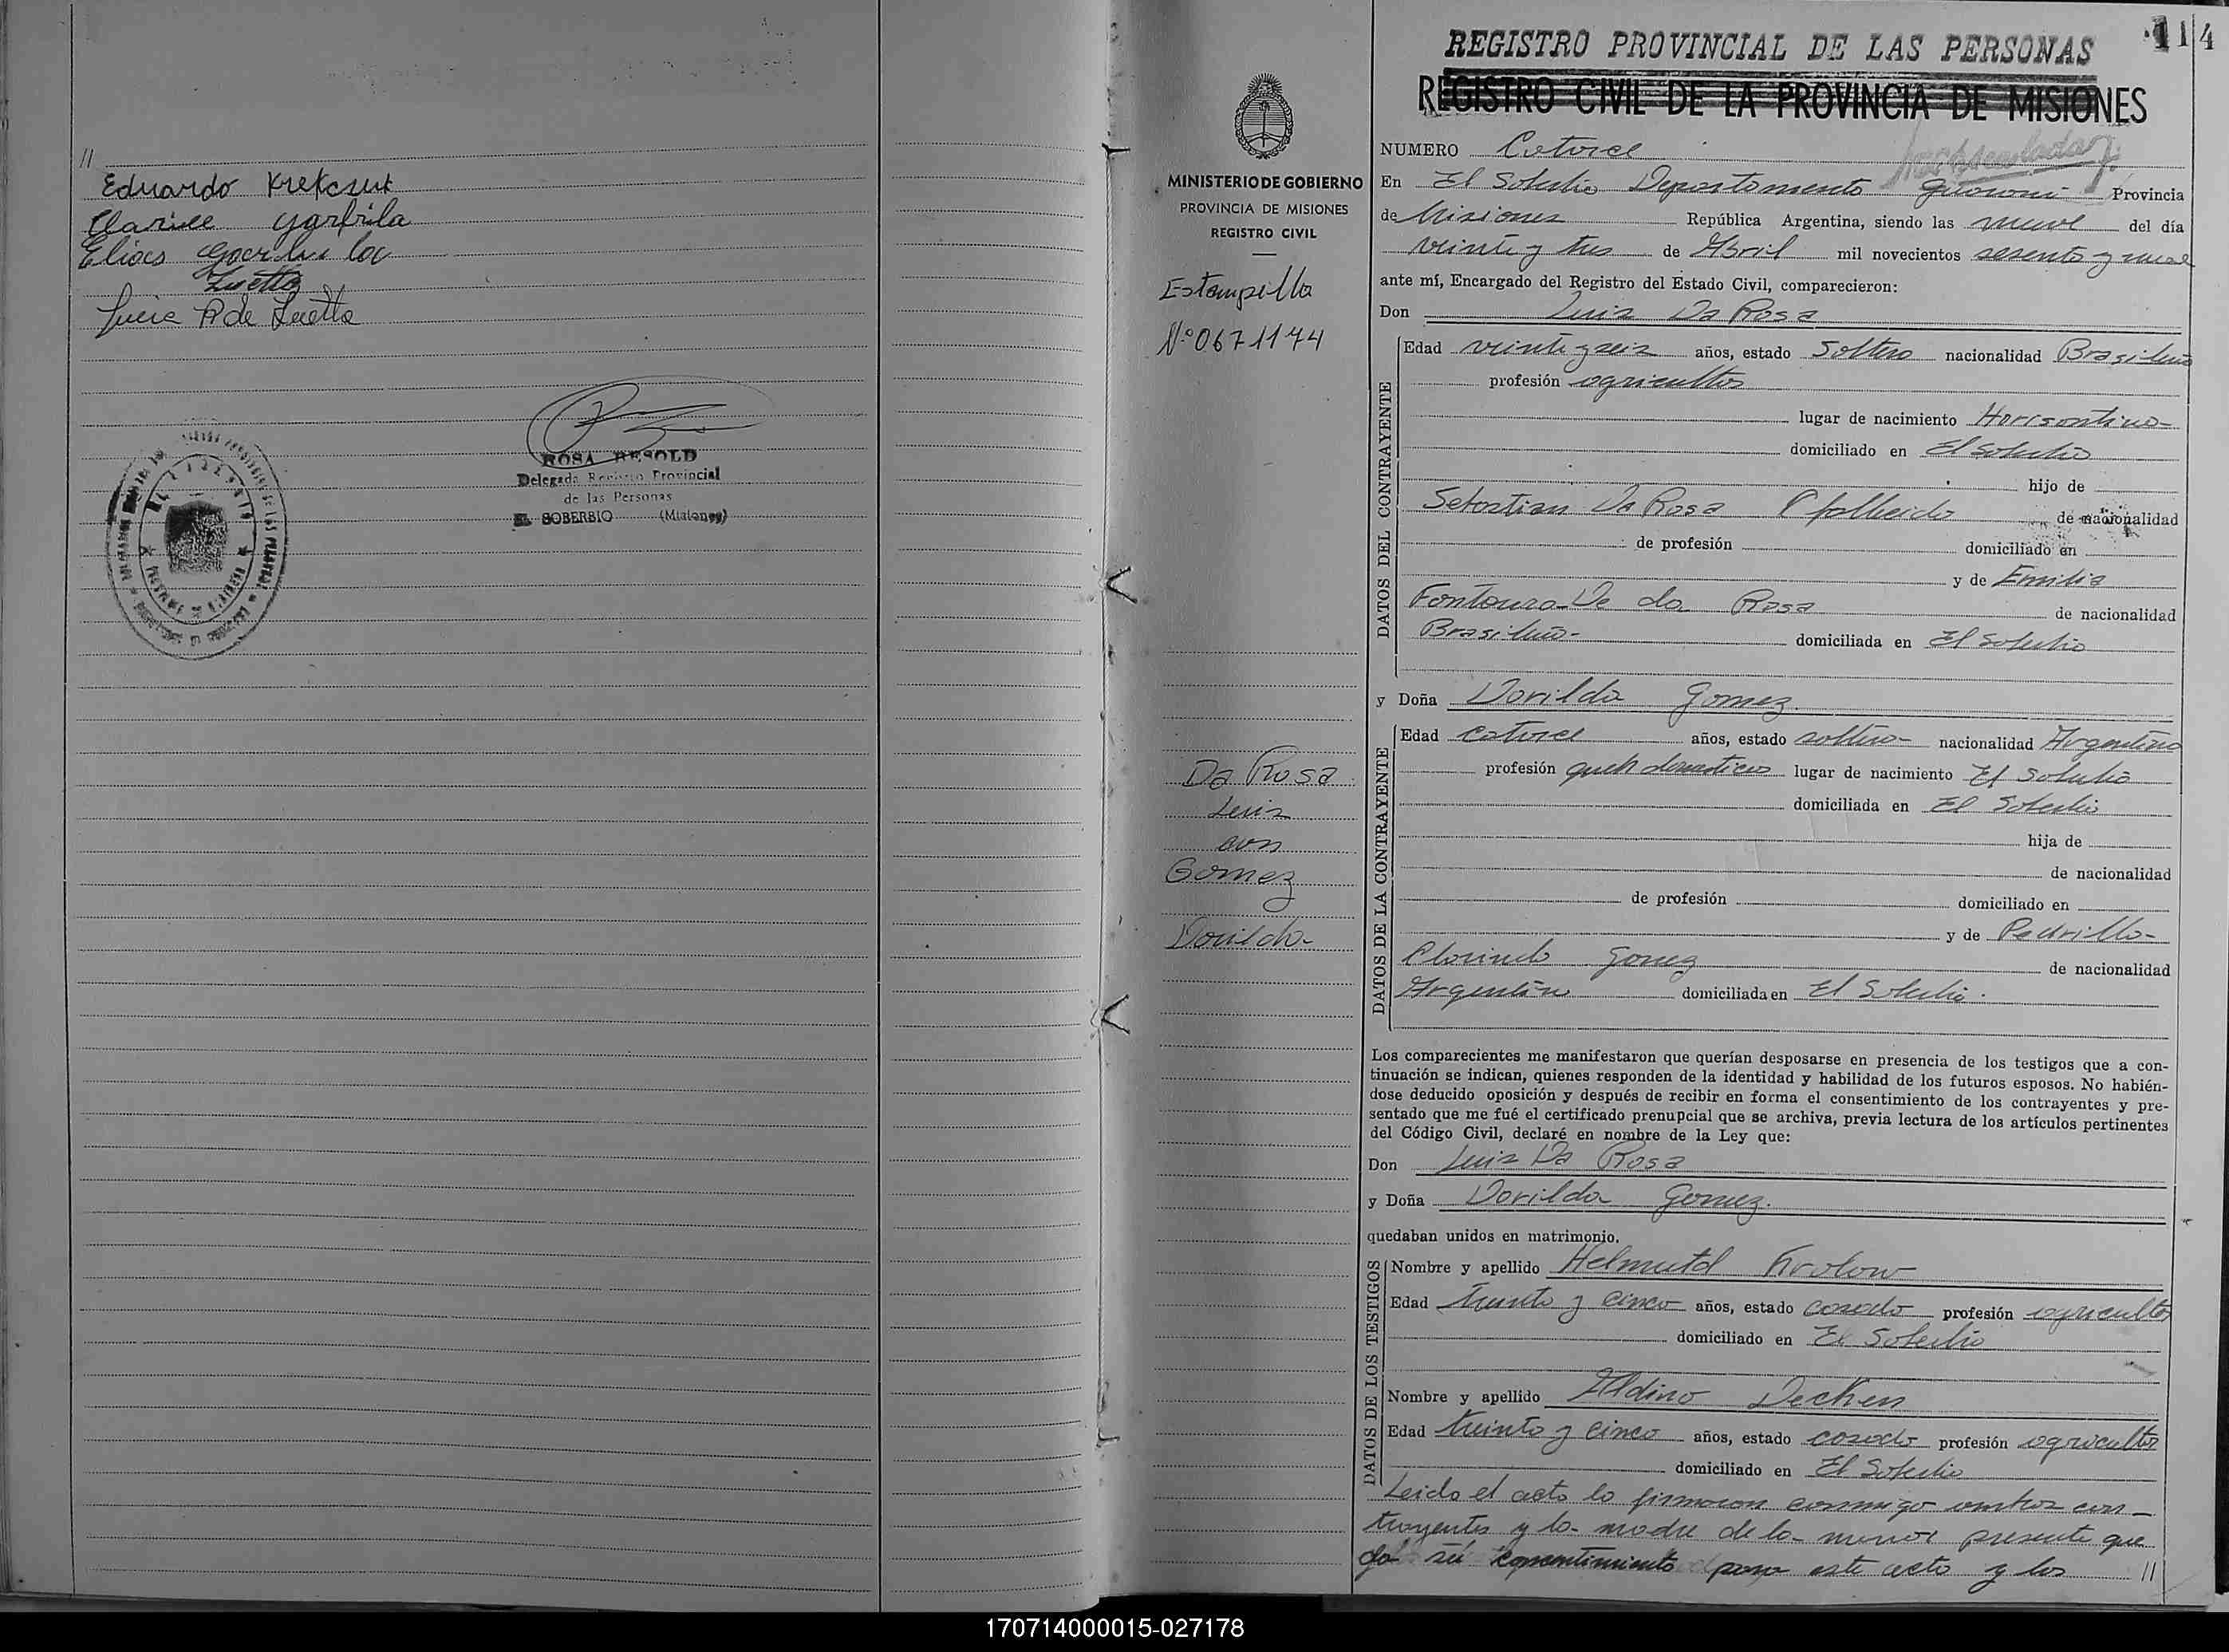 //
Eduardo Krekczuk
Elias
Lucia R de Luetto
ROSA BESOLD
Delegada Registro Provincial
de las Personas
EL SOBERBIO (Misiones)
114
REGISTRO PROVINCIAL DE LAS PERSONAS
REGISTRO CIVIL DE LA PROVINCIA DE MISIONES
MINISTERIO DE GOBIERNO
PROVINCIA DE MISIONES
REGISTRO CIVIL
Estampilla
Nº 0671174
Da Rosa
Luis
con
Gomez
Dorilda
NUMERO Catorce
En El Soberbio Departamento Guaraní Provincia
de Misiones República Argentina, siendo las nueve del día
veinte y tres de Abril mil novecientos sesenta y nueve
ante mí, Encargado del Registro del Estado Civil, comparecieron:
Don Luis Da Rosa
DATOS DEL CONTRAYENTE
Edad veinte y seis años, estado Soltero nacionalidad Brasileño
profesión agricultor
lugar de nacimiento Horisontino-
domiciliado en El Soberbio
hijo de
Sebastian Da Rosa de nacionalidad
de profesión domiciliado en
y de Emilia
Fontoura De da Rosa de nacionalidad
Brasileña- domiciliada en El Soberbio
y Doña Dorilda Gomez.
DATOS DE LA CONTRAYENTE
Edad Catorce años, estado soltera- nacionalidad Argentina
profesión queh domesticos lugar de nacimiento El Soberbio
domiciliada en El Soberbio
hija de
de nacionalidad
de profesión domiciliado en
y de Pedrilla-
Clorinda Gomez de nacionalidad
Argentina domiciliada en El Soberbio.
Los comparecientes me manifestaron que querían desposarse en presencia de los testigos que a con-
tinuación se indican, quienes responden de la identidad y habilidad de los futuros esposos. No habién-
dose deducido oposición y después de recibir en forma el consentimiento de los contrayentes y pre-
sentado que me fué el certificado prenupcial que se archiva, previa lectura de los artículos pertinentes
del Código Civil, declaré en nombre de la Ley que:
Don Luis Da Rosa
y Doña Dorilda Gomez.
quedaban unidos en matrimonio.
DATOS DE LOS TESTIGOS
Nombre y apellido Helmutd Krolow
Edad treinta y cinco años, estado casado profesión agricultor
domiciliado en El Soberbio
Nombre y apellido Aldino Decken
Edad treinta y cinco años, estado casado profesión agricultor
domiciliado en El Soberbio
Leida el acta la firmaron conmigo ambos con-
trayentes y la madre de la menor presente que
da su consentimiento para este acto y los //
170714000015-027178